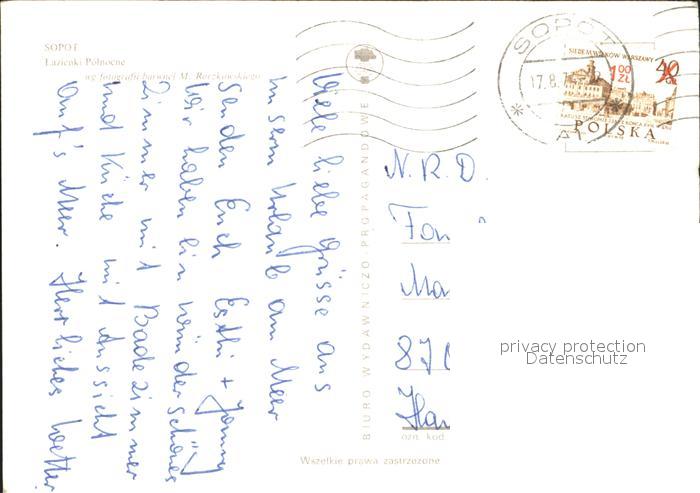 SOPOT
Łazienki Północne
wg fotografii barwnej M. Raczkowskiego
Viele liebe Grüsse aus
unserm Urlaub am Meer
senden Euch Esthi + Jonny
Wir haben ein wunderschönes
Zimmer mit Badezimmer
und Küche mit Aussicht
auf's Meer. Herrliches Wetter.
BIURO WYDAWNICZO PROPAGANDOWE
SOPOT
17.8.7
A1
SIEDEM WIEKÓW WARSZAWY
1 00
ZŁ
40
GR
POLSKA
N.R.D.
Fam
Ma
87
Ha
ozn. kod.
privacy protection
Datenschutz
Wszelkie prawa zastrzeżone